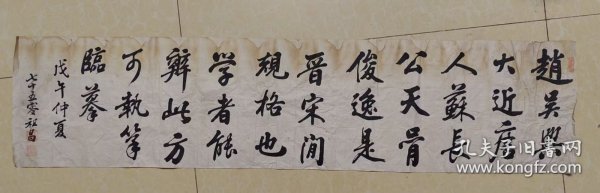 趙吳興
大近唐
人蘇長
公天骨
俊逸是
晉宋間
規格也
學者能
辨此方
可執筆
臨摹
戊午仲夏
七十五
孔夫子旧书网